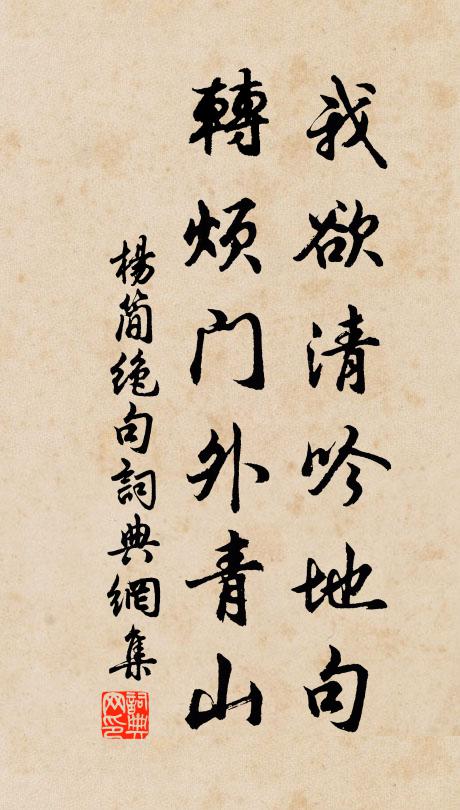 我欲清吟地句
轉煩门外青山
楊简绝句詞典網集
詞典网印